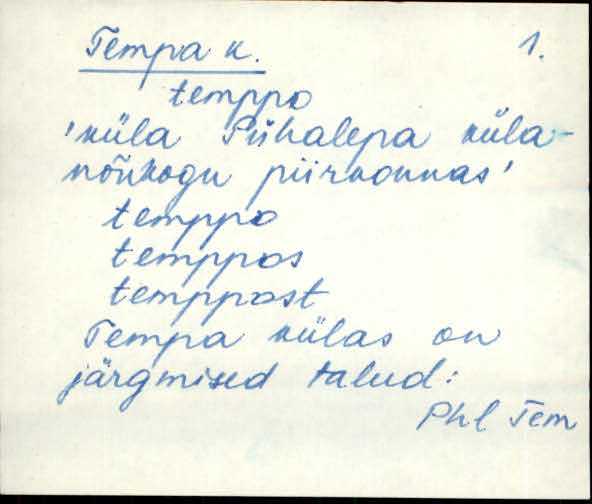 Tempa k. 1.
temppo
'küla Pühalepa küla-
nõukogu piirkonnas'
temppo
temppos
temppost
Tempa külas on
järgmised talud:
Phl Tem